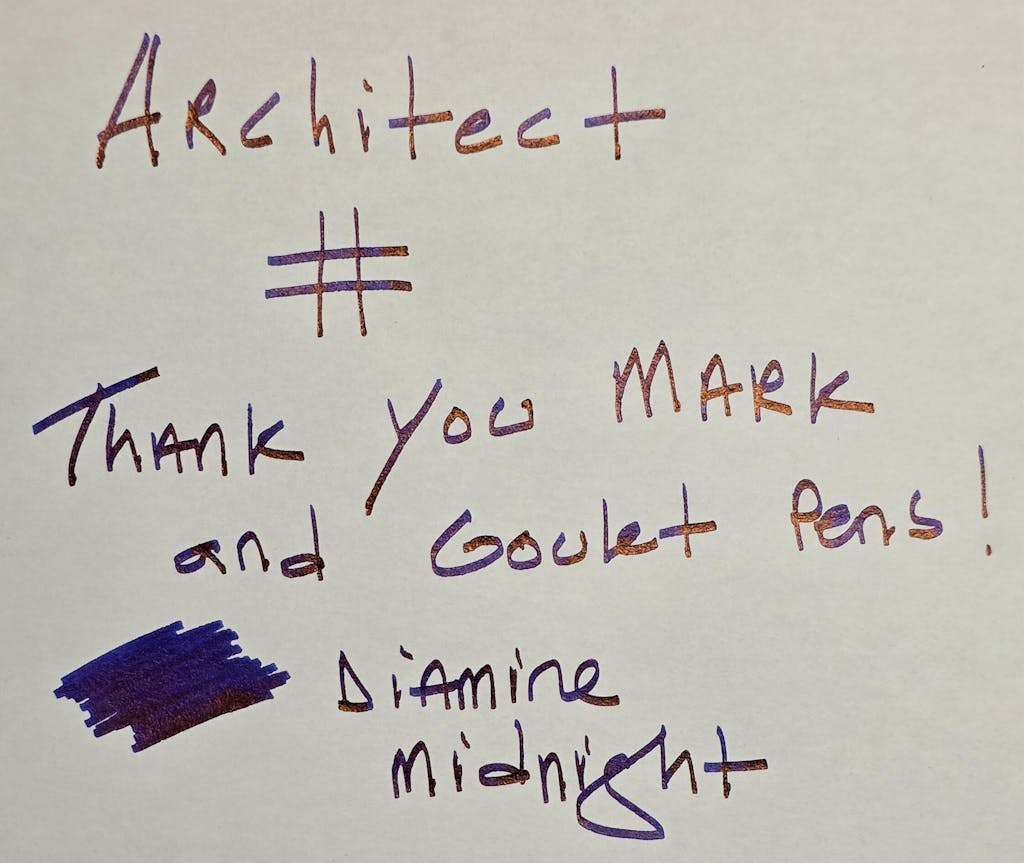 Architect
#
Thank you MARK
and Goulet Pens!
Diamine
midnight